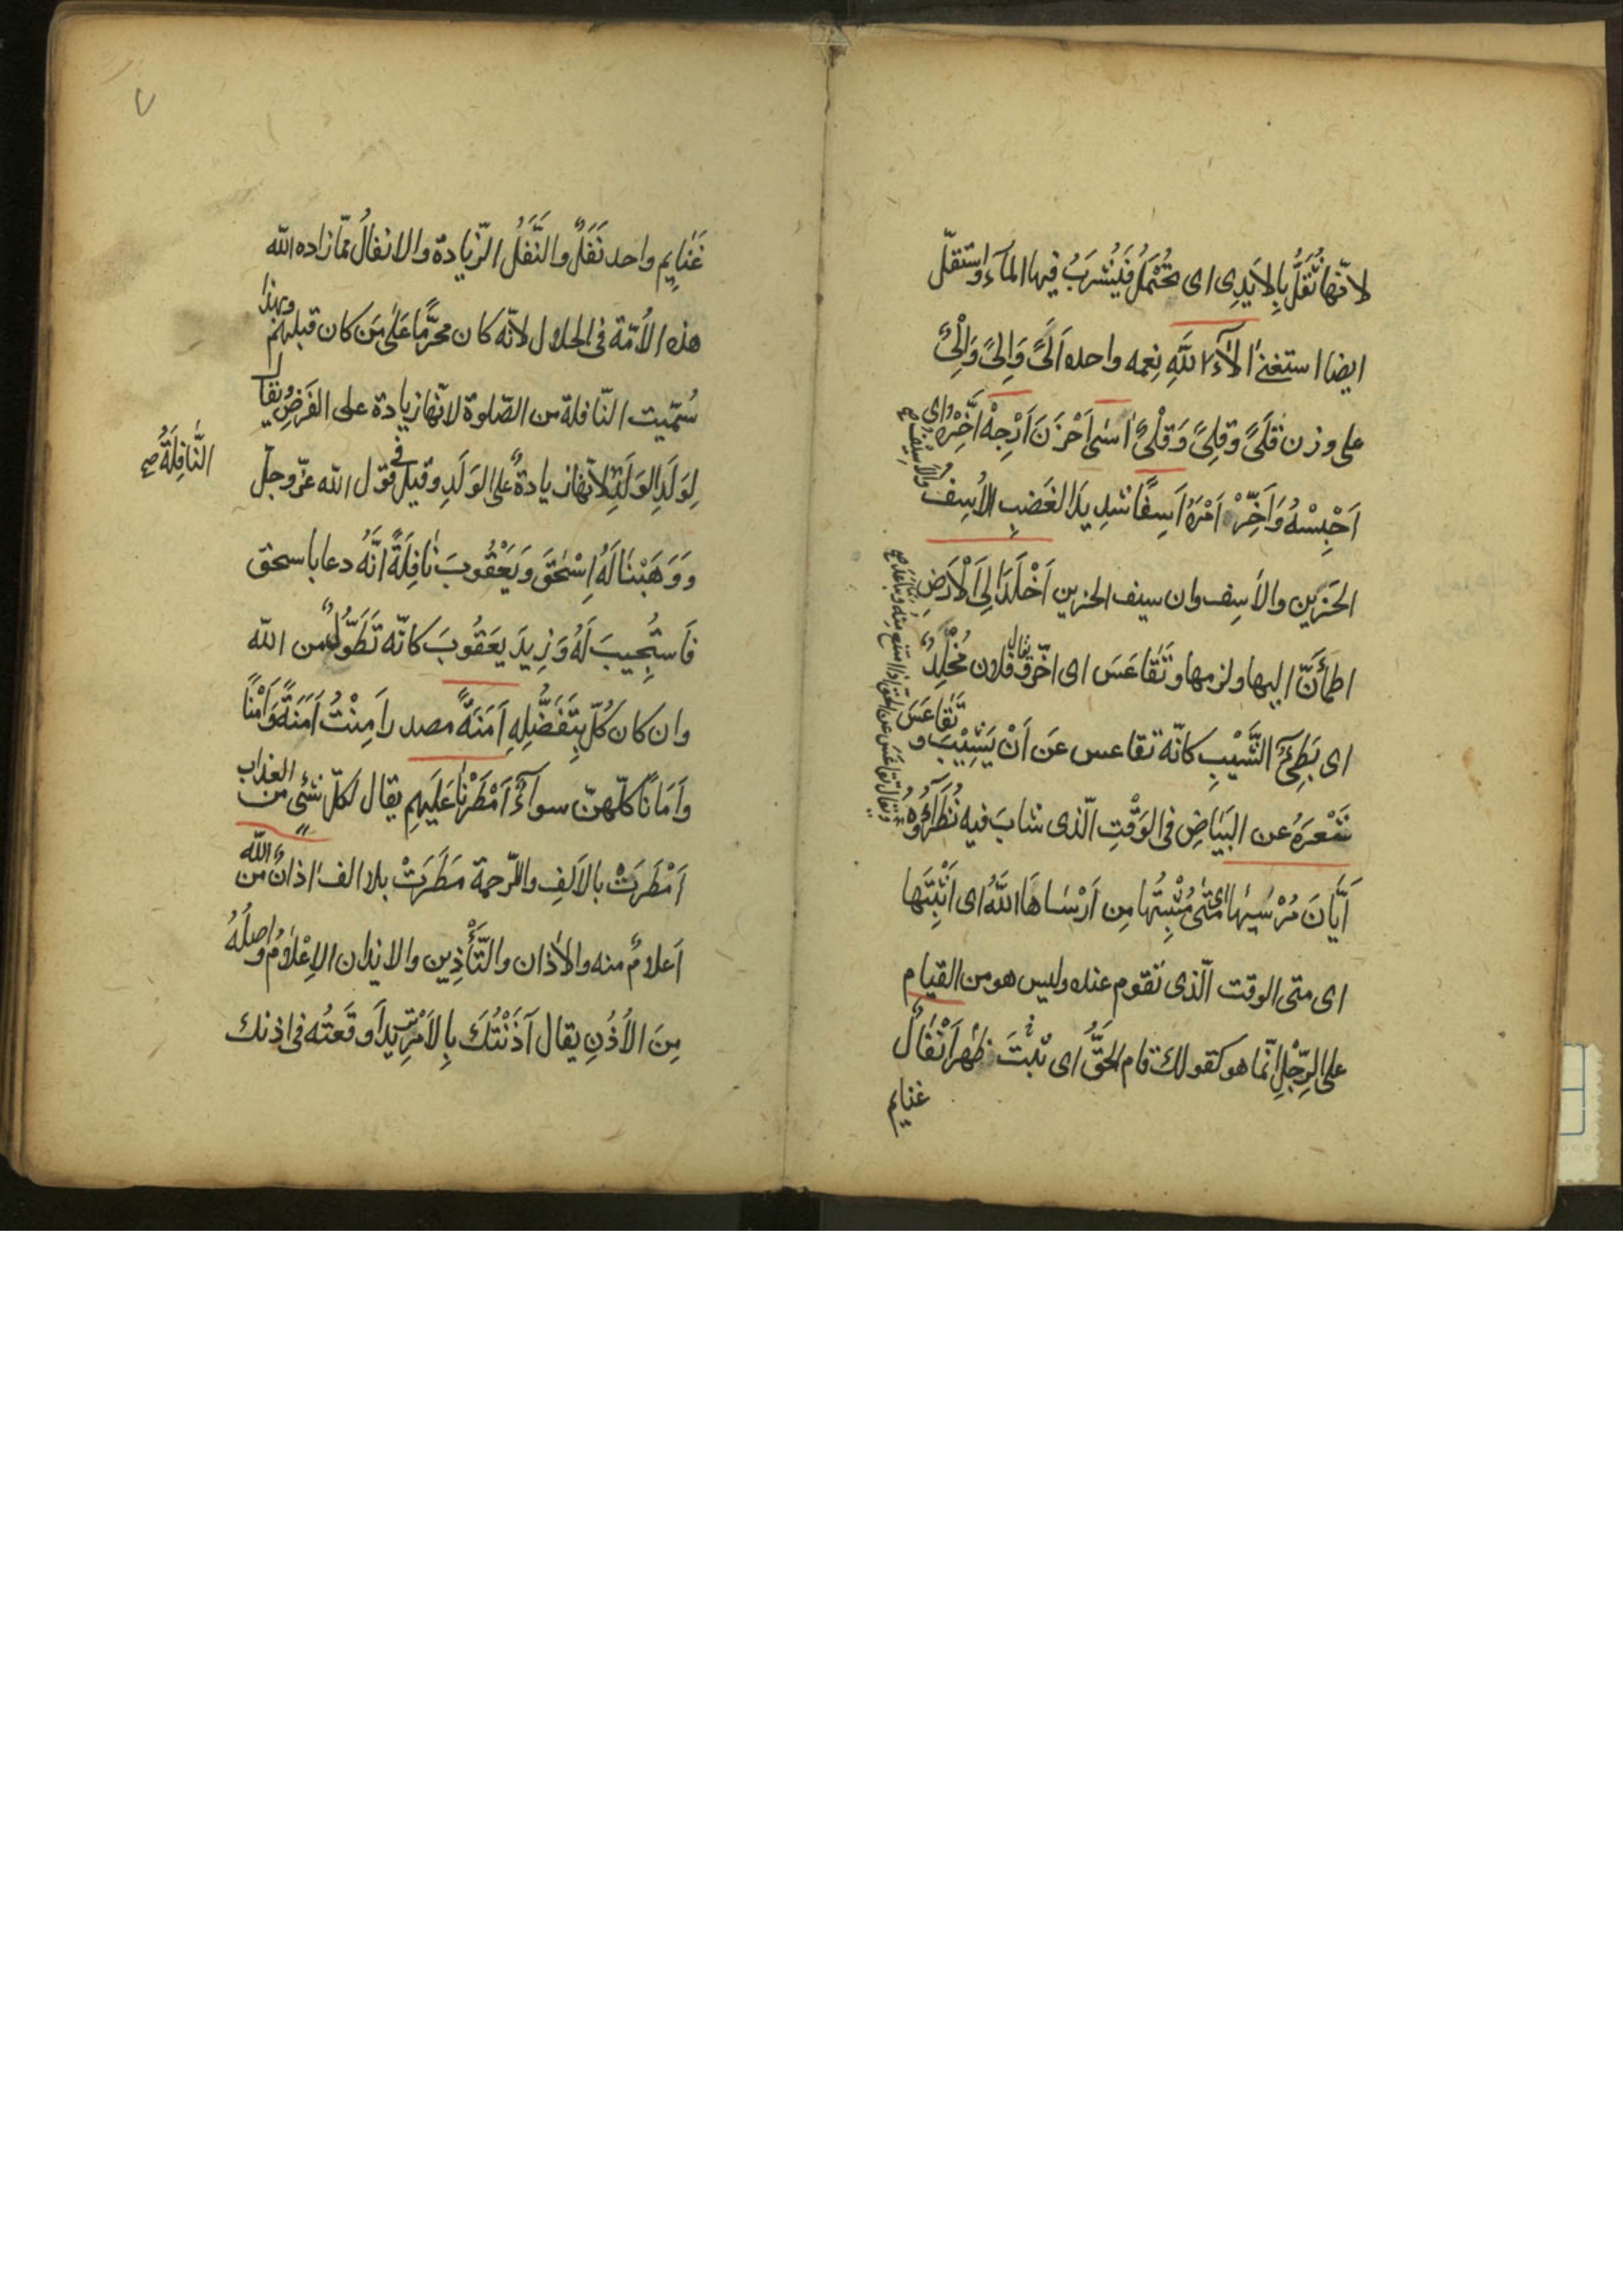 لانّها تُقَلُّ بِالاَيدِى اى تُحْمَلُ فَيُشرَبُ فيها المآء واستقلّ
ايضا استغنىٰ اٰلآءَ اللّٰهِ نِعمه واحده اَلًى وَاِلًى وَاِلْىٌ
على وزن قَلًى وقِلًى وَقِلْىٌ اسٰى اَحْزَنَ اَرْجِهْ اَخِّرْهُ اى
اَحْبِسْهُ وَاَخِّرْ اَمْرَهُ اَسِفًا شديد الغَضبِ الاَسِف
والاَسِيْفُ صح
الحَزين والاَسِف وان سيف الحزين اَخْلَدَ اِلَى الْاَرْضِ
اطمأَنَّ اليها ولزمها وتَقاعَسَ اى اخّر ق يقال فلان مُخْلِدٌ
اى بَطِىْءُ الشَّيْبِ كانّه تقاعس عَن اَنْ يَشِيْبَ و تَقاعَسَ
ويقال تقاعَسَ عن الحق اذا امتنع منه وتباعَدَ صح
شَعْرَهُ عن البَيَاضِ فى الوَقْتِ الّذى شابَ فيه نُظَرَآؤُهُ
اَيَّانَ مُرْسٰيها اى مَتٰى مُثْبِتُها مِن اَرْسَاهَا اللّٰهُ اى اَثْبَتَها
اى متى الوقت الّذى تقوم عنده وليس هو من القيام
على الرِّجْلِ انّما هو كقولك قام الحَقُّ اى ثبتَ ظهر اَنْفَالُ
غنايم
٧
غَنٰايِم واحد نَفَلٌ والنَّفَلُ الزّيادة والانفالُ ممّا زاده الله
هذه الاُمّة فى الحلال لانّه كان محرَّمًا عَلٰى مَن كان قبلهم وبهذا
سُمّيت النّافلة من الصّلوة لانّها زيادة على الفَرضِ ويقال
لِوَلَدِ الوَلَدِ لانّها زيادةٌ على الوَلَدِ وقيل فى قول الله عزّوجلّ
النّافِلَةُ صح
وَوَهَبْنٰا لَهُ اِسْحٰقَ وَيَعْقُوبَ نٰافِلَةً انَّهُ دعا باسحٰق
فَاستُجِيبَ لَهُ وَزِيدَ يَعقُوبَ كانّه تَطَوُّلٌ من الله
وان كان كُلٌّ بِتَفَضُّلِهِ اَمَنَةً مصدر اَمِنْتُ اَمَنَةً وَاَمْنًا
وَاَمَانًا كلّهنّ سوآءٌ اَمْطَرْنٰا عَلَيهِم يقال لكلّ شئٍ من العذاب
اَمْطَرَتْ بالاَلَفِ والرّحمة مَطَرَتْ بلا الف اَذانٌ من الله
اَعلامٌ منه والاَذان والتّأْذِين والايذان الاِعْلامُ واصلُهُ
مِنَ الاُذُنِ يقال آذَنْتُكَ بِالاَمْرِ تريد اَوقَعتُه فى اذنك